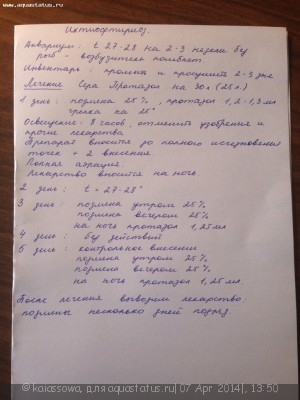 Ихтиофтириоз.
Аквариум: t 27-28 на 2-3 недели без
рыб - возбудитель погибает.
Инвентарь: промыть и просушить 2-3 дня
Лечение Сера Протазол на 30л (25л)
1 день: подмена 25%, протазол 1,2-1,3мл
грелка на 28°
Освещение - 8 часов, отменить удобрения и
прочие лекарства
Препарат вносится до полного исчезновения
точек + 2 внесения.
Полная аэрация.
Лекарство вносится на ночь.
2 день: t = 27-28°
3 день: подмена утром 25%
подмена вечером 25%
на ночь протазол 1,25мл
4 день: без действий
5 день: контрольное внесение
подмена утром 25%
подмена вечером 25%
на ночь протазол 1,25мл.
После лечения выводим лекарство:
подмены несколько дней подряд.
© kaiassowa, для aquastatus.ru| 07 Apr 2014|, 13:50